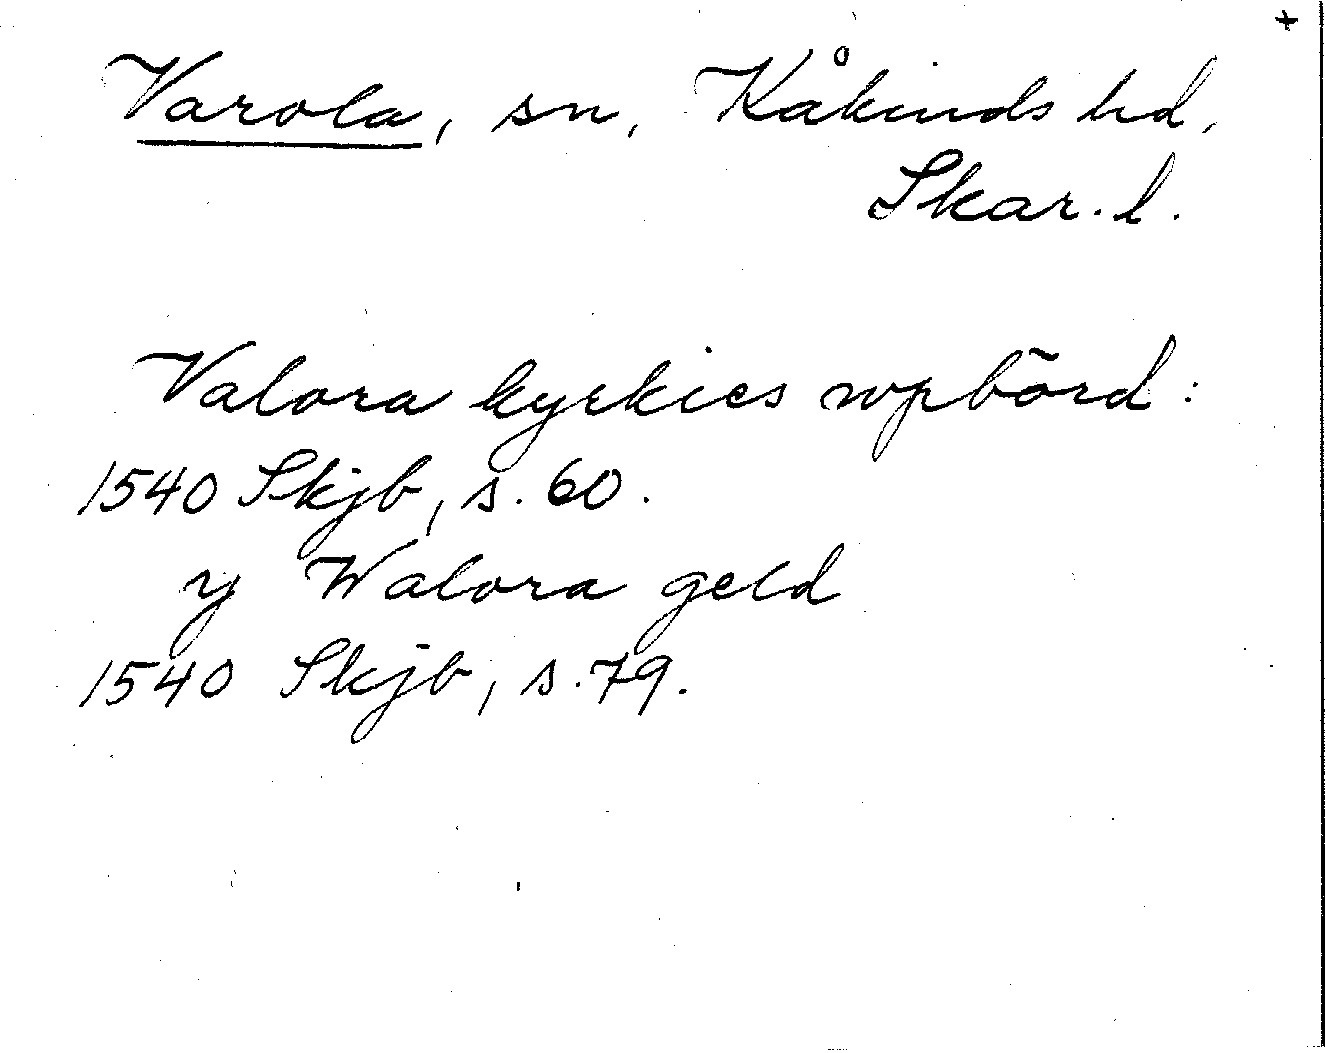 +
Varola, sn, Kåkinds hd,
Skar. l.
Valora kyrkies wpbörd:
1540 Skjb, s. 60.
y Walora geld
1540 Skjb, s. 79.